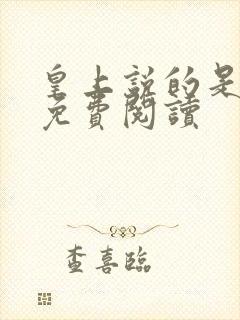 皇上說的是
免費閱讀
查喜臨